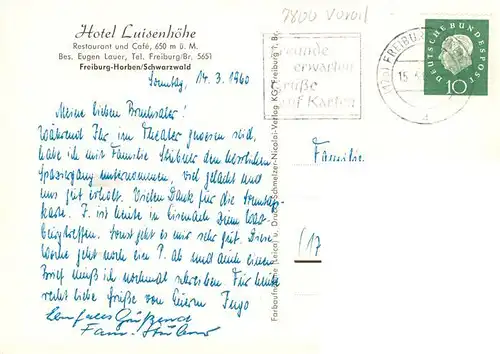 Hotel Luisenhöhe
Restaurant und Café, 650 m ü. M.
Bes. Eugen Lauer, Tel. Freiburg/Br. 5651
Freiburg-Horben/Schwarzwald
Sonntag, 14.3.1960
Meine lieben Bruchsaler!
Während Ihr im Theater gewesen seid,
habe ich mit Familie Stübner den herrlichen
Spaziergang unternommen, viel gelacht und
uns gut erholt. Vielen Dank für die Sonntags-
karte. J. ist heute in Eisenach
Sonst geht es mir sehr gut. Diese
Woche geht noch ein P. ab und auch einen
Brief muß ich nochmal schreiben. Für heute
recht liebe Grüße von Eurem
Fam.
Farbaufnahme (Leica) u. Druck Schmelzer-Nicolai-Verlag KG, Freiburg i. Br.
7800
Freunde
erwarten
Grüße
auf Karten
FREIBURG
DEUTSCHE BUNDESPOST
10
Familie
(17